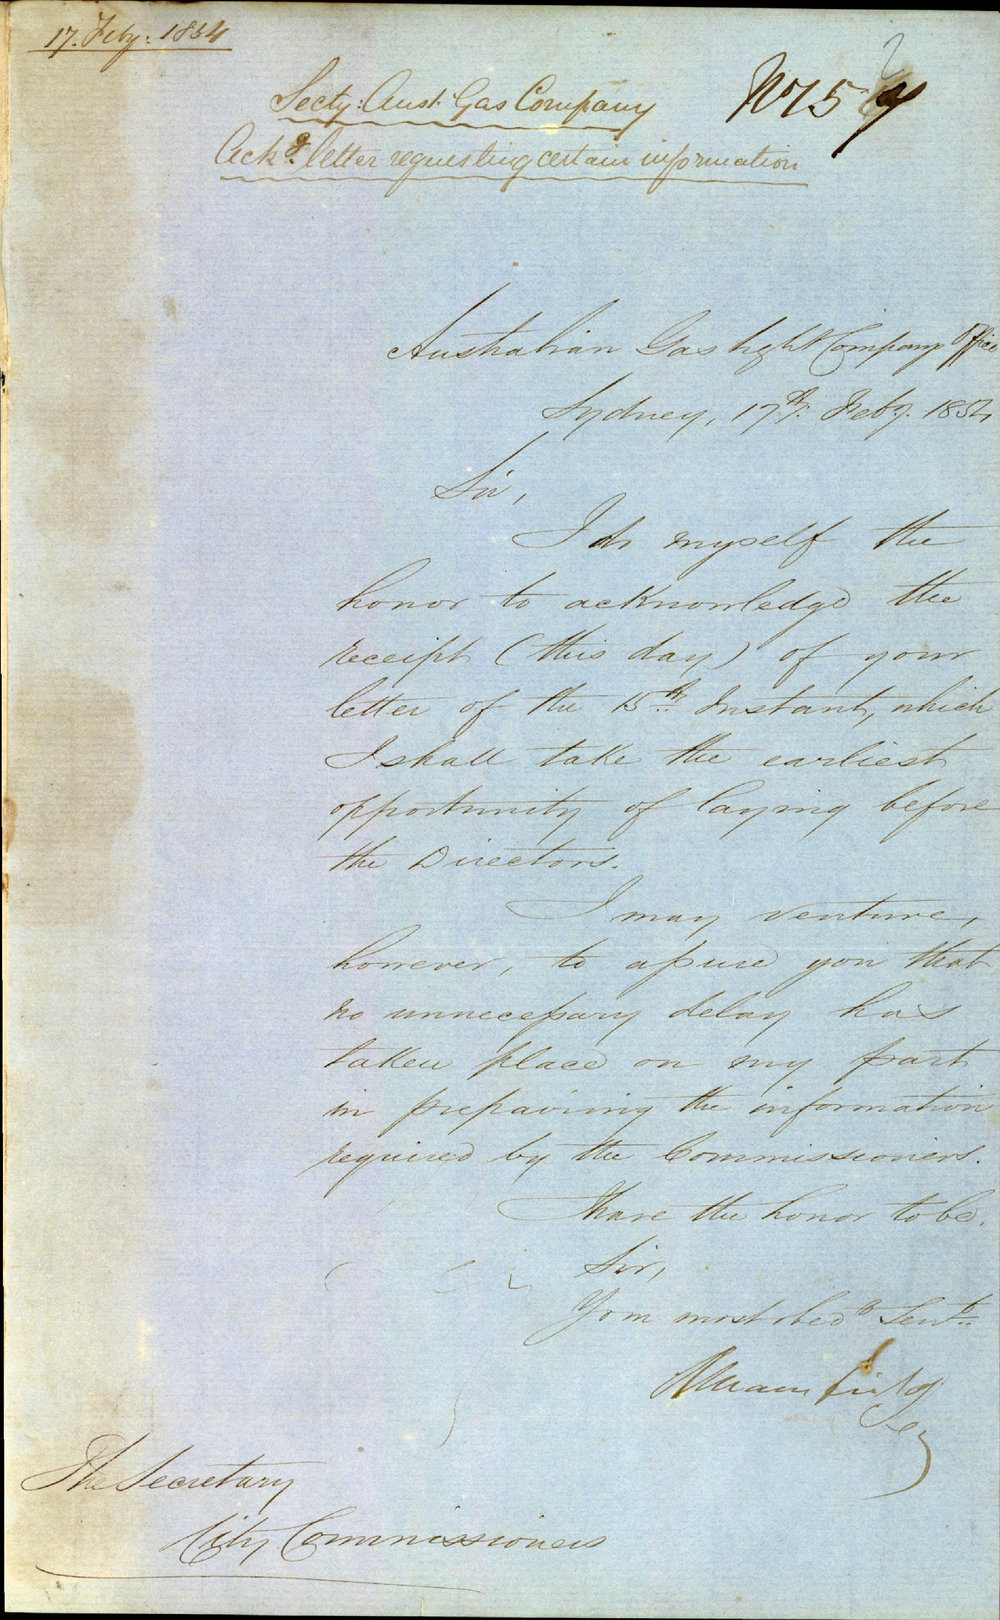 17. Feby: 1854
Secty: Aust: Gas Company
Ackg. letter requesting certain information
Australian Gas light Company Office
Sydney, 17th. Feby. 1854
Sir,
I do myself the
honor to acknowledge the
receipt (this day) of your
letter of the 15th. Instant, which
I shall take the earliest
opportunity of laying before
the Directors.
I may venture,
however, to assure you that
no unnecessary delay has
taken place on my part
in preparing the information
required by the Commissioners.
I have the honor to be.
Sir,
Your most obedt. Servt.
Secy
The Secretary
City Commissioners